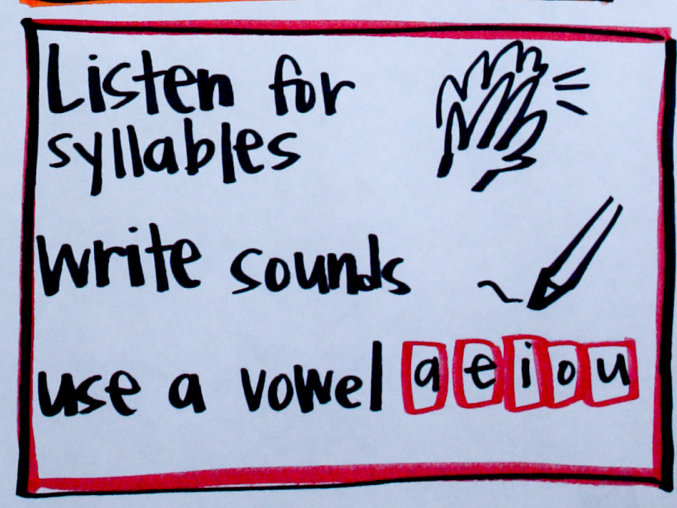 Listen for
syllables
write sounds
use a vowel a e i o u